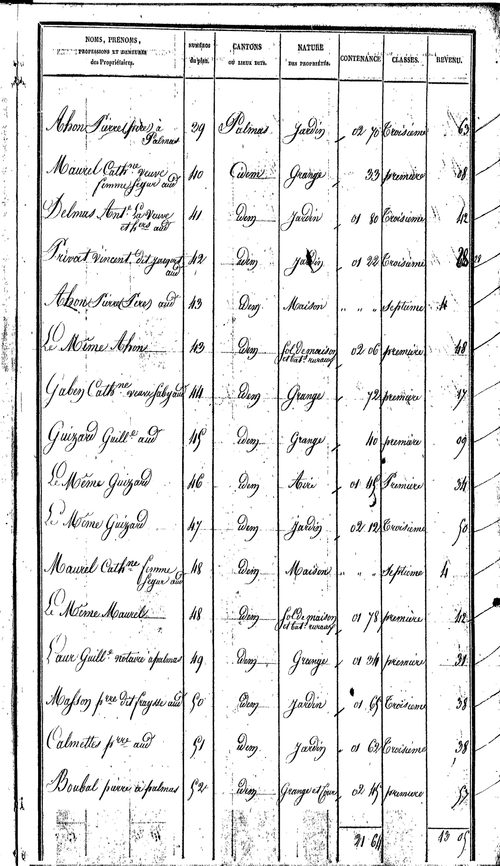 NOMS, PRÉNOMS, PROFESSIONS ET DEMEURES des Propriétaires. NUMÉROS du plan. CANTONS OU LIEUX DITS. NATURE DES PROPRIÉTÉS. CONTENANCE CLASSES. REVENU.
Ahon Pierre (père) à Palmas 39 Palmas Jardin 02 70 Troisieme 63
Maurel Cathne veuve femme Segur aud 40 idem Grange 33 premiere 08
Delmas Ante la veuve et hers aud 41 idem Jardin 01 80 Troisieme 42
Privat Vincent dit Jacques aud 42 idem Jardin 01 22 Troisieme 28
Ahon Pierre (Père) aud 43 idem Maison " " " Septieme 4
Le Même Ahon 43 idem Sol de maison et batt ruraux 02 06 premiere 48
Gaben Cathne veuve aud 44 idem Grange 72 premiere 17
Guizard Guille aud 45 idem Grange 40 premiere 09
Le Même Guizard 46 idem Aire 01 45 Premiere 34
Le Même Guizard 47 idem Jardin 02 12 Troisieme 50
Maurel Cathne femme Segur aud 48 idem Maison " " " Septieme 4
Le Même Maurel 48 idem Sol de maison et batt ruraux 01 78 premiere 42
Laur Guille notaire à palmas 49 idem Grange 01 34 premiere 31
Masson pre dit fraysse aud 50 idem Jardin 01 65 Troisieme 38
Calmettes prre aud 51 idem Jardin 01 62 Troisieme 38
Boubal pierre à palmas 52 idem Grange et Cour 02 45 premiere 57
21 64 13 05